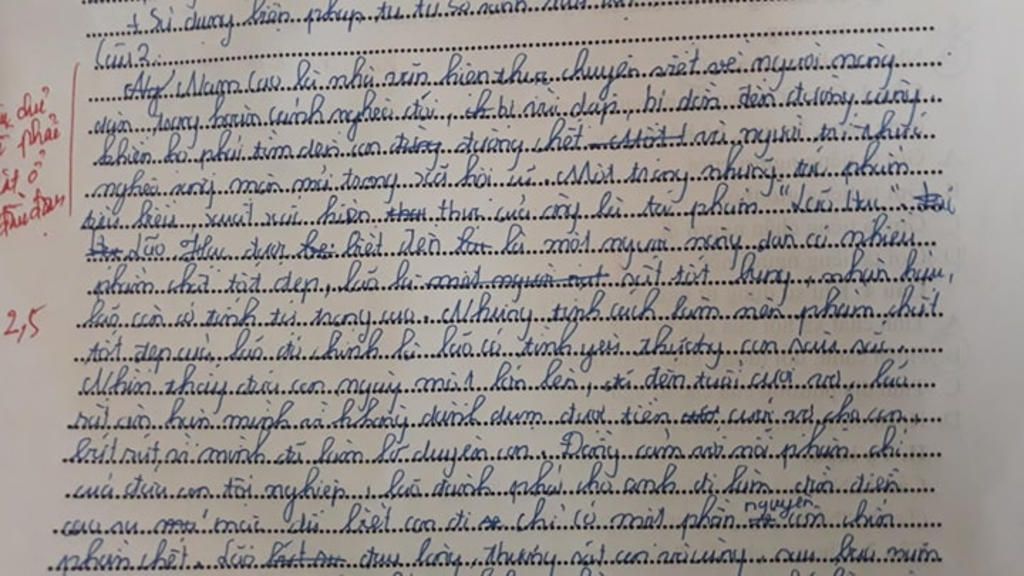 + Sử dụng biện pháp tu từ so sánh
Câu 2.
Nam Cao là nhà văn hiện thực chuyên viết về người nông
dân trong hoàn cảnh nghèo đói, bị vùi dập, bị dồn đến đường cùng
khiến họ phải tìm đến con đường chết và người trí thức
nghèo sống mòn mỏi trong xã hội cũ. Một trong những tác phẩm
tiêu biểu, xuất sắc hiện thực của ông là tác phẩm "Lão Hạc".
Lão Hạc được biết đến là một người nông dân có nhiều
phẩm chất tốt đẹp, lão là một người rất tốt bụng, nhân hậu,
lão còn có tính tự trọng cao. Nhưng tính cách làm nên phẩm chất
tốt đẹp của lão đó chính là lão có tình yêu thương con sâu sắc.
Nhìn thấy đứa con ngày một lớn lên, đến tuổi cưới vợ, lão
rất cắn hận mình và không dành dụm được tiền cưới vợ cho con,
bứt rứt vì mình đã làm lỡ duyên con. Đồng cảm với nỗi phẫn chí
của đứa con tội nghiệp, lão đành phải cho anh đi làm đồn điền
cao su mặc dù biết con đi chỉ có một phần nguyên còn chín
phần chết. Lão đau lòng, thương xót con vô cùng
2,5